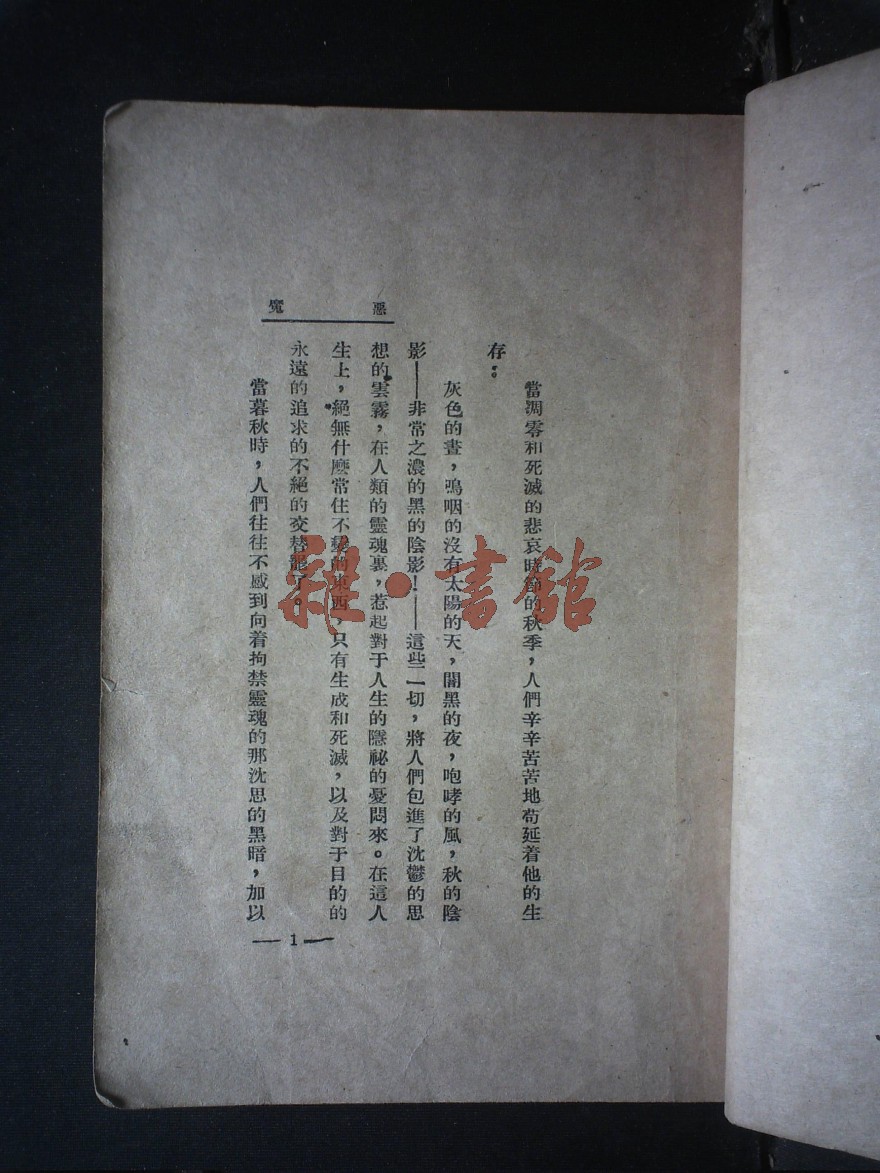 惡魔
當凋零和死滅的悲哀時節的秋季，人們辛辛苦苦地苟延着他的生
存。
灰色的晝，嗚咽的沒有太陽的天，闇黑的夜，咆哮的風，秋的陰
影——非常之濃的黑的陰影！——這些一切，將人們包進了沈鬱的思
想的雲霧，在人類的靈魂裏，惹起對于人生的隱祕的憂悶來。在這人
生上，絕無什麽常住不變的東西，只有生成和死滅，以及對于目的的
永遠的追求的不絕的交替罷了。
當暮秋時，人們往往不感到向着拘禁靈魂的那沈思的黑暗，加以
—1—
雜·書館